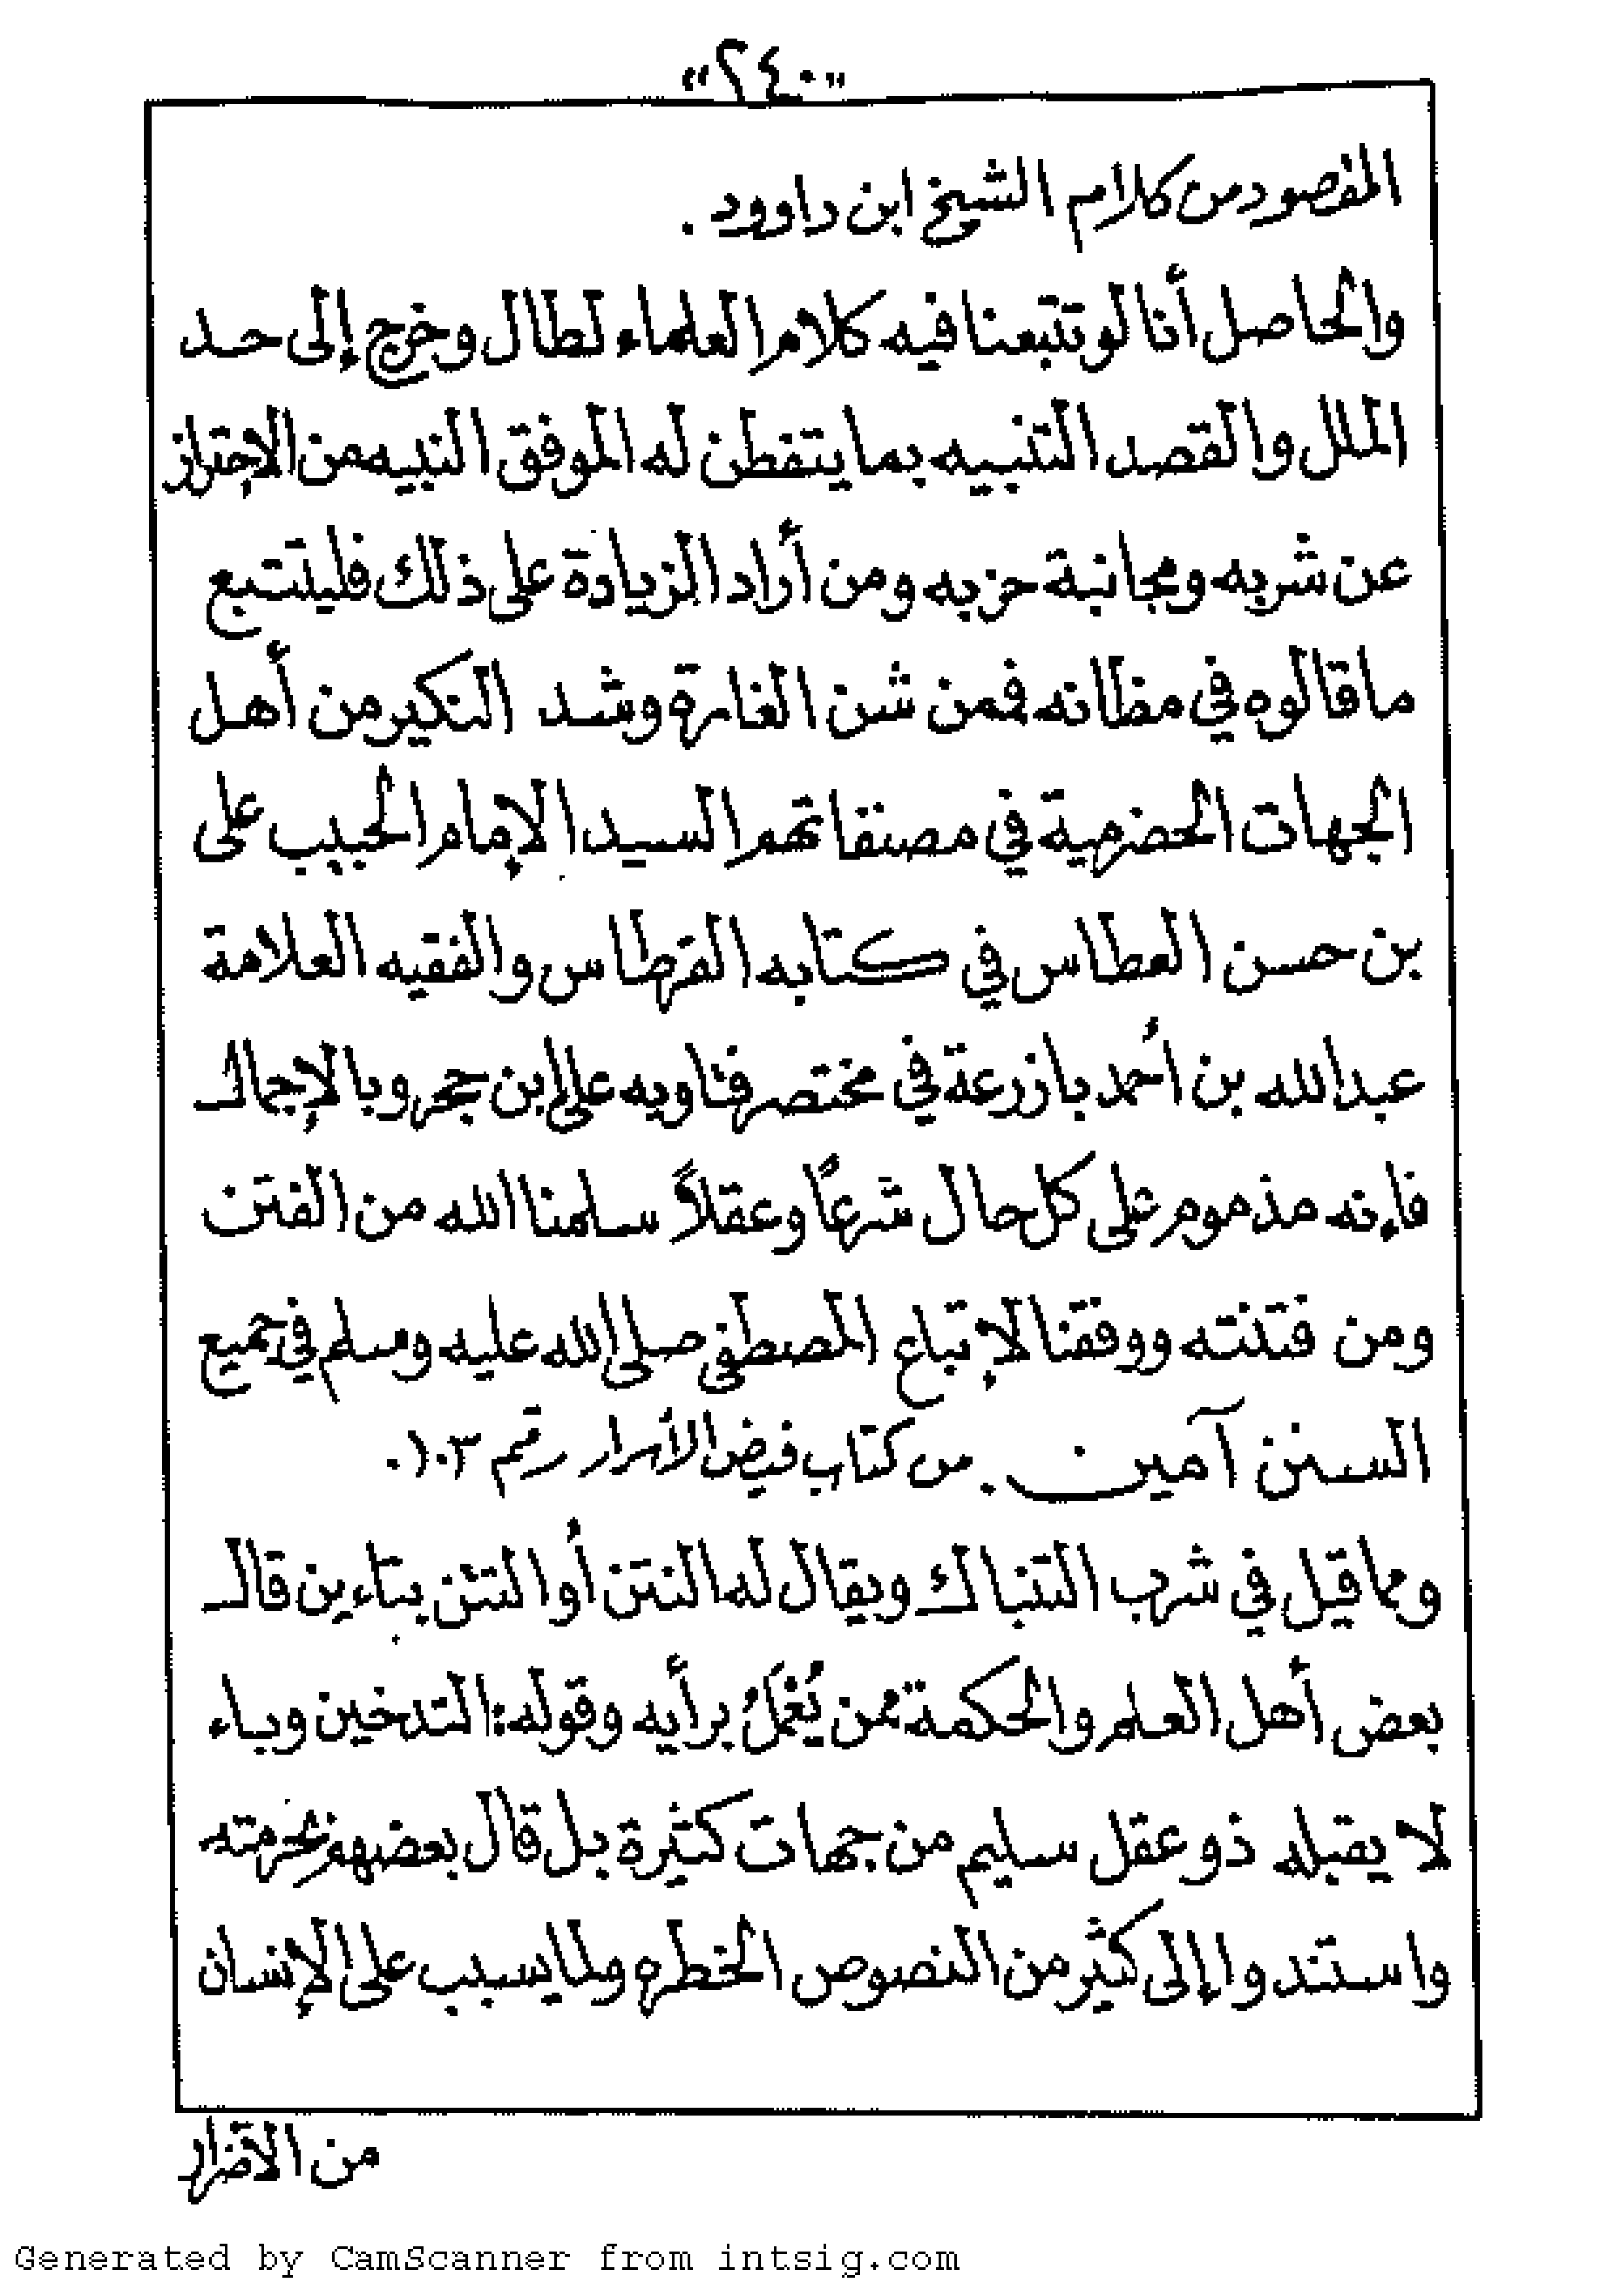 "٢٤٠"
المقصود من كلام الشيخ ابن داوود .
والحاصل أنا لو تتبعنا فيه كلام العلماء لطال وخرج إلى حد
الملل والقصد التنبيه بما يتفطن له الموفق النبيه من الإحتراز
عن شربه ومجانبة حزبه ومن أراد الزيادة على ذلك فليتتبع
ما قالوه في مظانه فمن شن الغارة وشد النكير من أهل
الجهات الحضرمية في مصنفاتهم السيد الإمام الحبيب على
بن حسن العطاس في كتابه القرطاس والفقيه العلامة
عبدالله بن أحمد بازرعة في مختصر فتاويه على ابن حجر وبالإجمال
فإنه مذموم على كل حال شرعاً وعقلاً سلمنا الله من الفتن
ومن فتنته ووفقنا لإتباع المصطفى صلى الله عليه وسلم في جميع
السنن آمين . من كتاب فيض الأسرار رقم ١٠٣ .
ومما قيل في شرب التنباك ويقال له النتن أو التتن بتاءين قال
بعض أهل العلم والحكمة ممن يُعْمَلُ برأيه وقوله: التدخين وباء
لا يقبله ذو عقل سليم من جهات كثيرة بل قال بعضهم بحرمته
واستندوا إلى كثير من النصوص الخطره ولما يسبب على الإنسان
من الأضرار
Generated by CamScanner from intsig.com